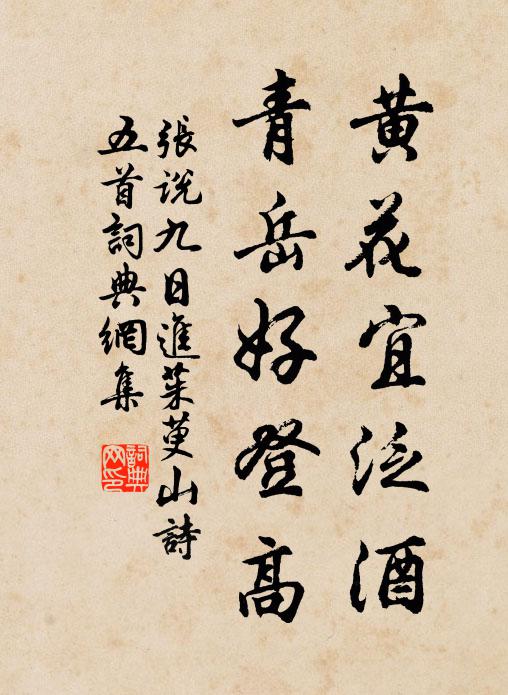 黄花宜泛酒
青岳好登高
張説九日進茱萸山詩
五首詞典網集
詞典
网印